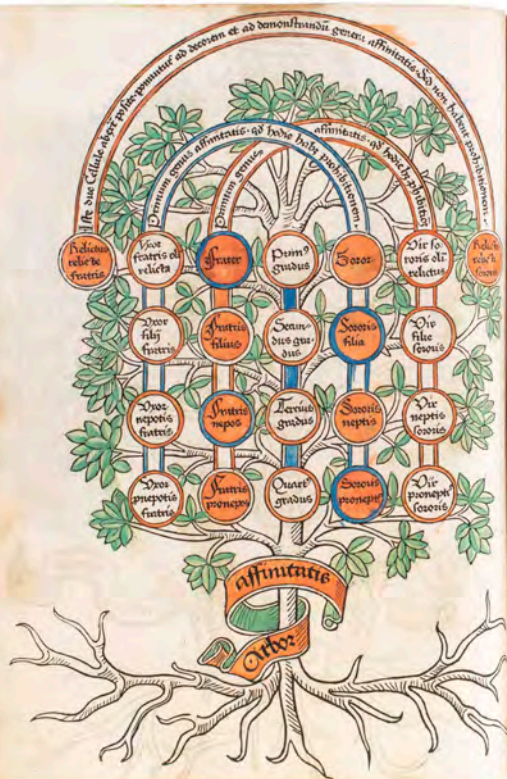 Iste due Cellule absque posite ponuntur ad decorem et ad demonstrandũ genera affinitatis. Sed non habent prohibitionem.
Primum genus affinitatis. qđ hodie habꝫ prohibitionem.
Primum genus affinitatis. qđ hodie hꝫ phibitio
Relictus
relicte
fratris
Vxor
fratris oĩ
relicta
Frater
Primꝰ
gradus
Soror
Vir so⸗
roris oĩ
relictus
Relicta
relicti
sororis
Vxor
filij
fratris
Fratris
filius
Secun⸗
dus gra⸗
dus
Sororis
filia
Vir
filie
sororis
Vxor
nepotis
fratris
Fratris
nepos
Tercius
gradus
Sororis
neptis
Vir
neptis
sororis
Vxor
pnepotis
fratris
Fratris
pronepos
Quartꝰ
gradus
Sororis
proneptꝭ
Vir
proneptꝭ
sororis
affinitatis
Arbor